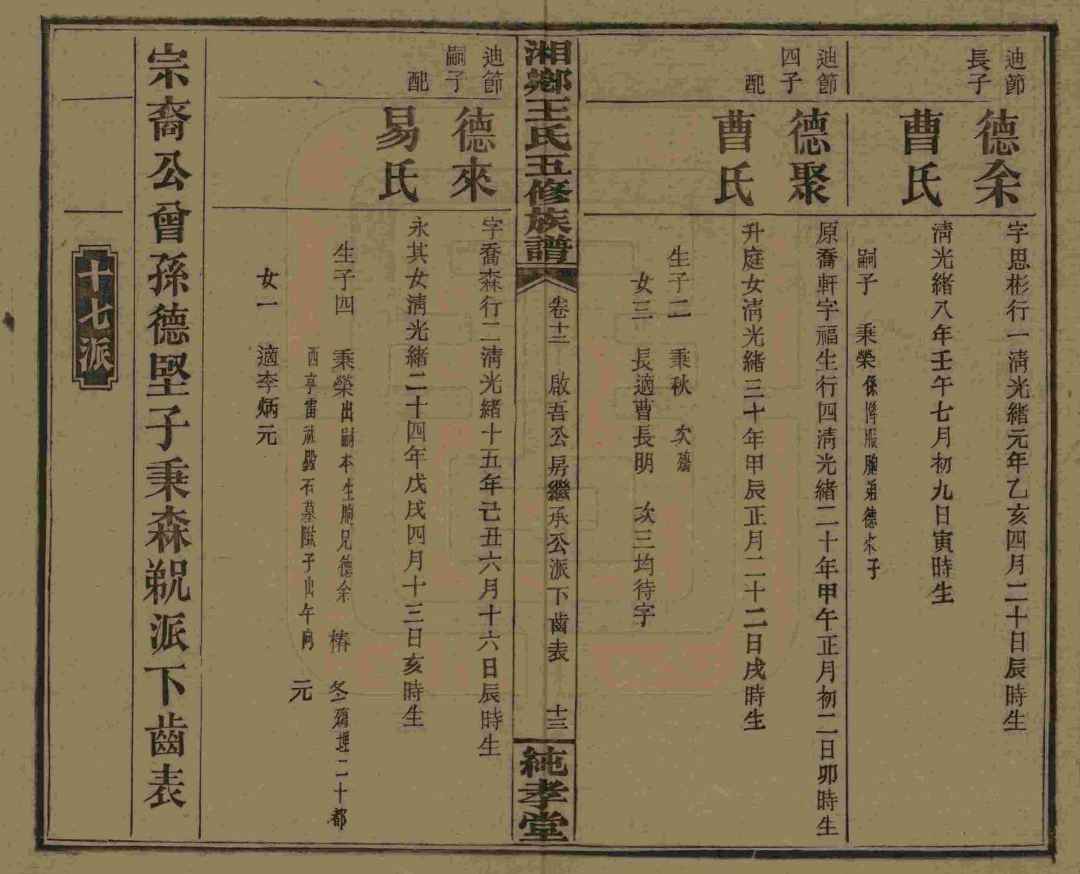 迪節長子
德余
字思彬行一清光緒元年乙亥四月二十日辰時生
曹氏
清光緒八年壬午七月初九日寅時生
嗣子 秉榮係隮服胞弟德來子
迪節四子
德聚
原喬軒字福生行四清光緒二十年甲午正月初二日卯時生
配
曹氏
升庭女清光緒三十年甲辰正月二十二日戌時生
生子二 秉秋 次殤
女三 長適曹長明 次三均待字
湘鄉王氏五修族譜
卷十二
啟吾公房繼承公派下齒表
十三
純孝堂
迪節嗣子
德來
字喬森行二清光緒十五年己丑六月十六日辰時生
配
易氏
永其女清光緒二十四年戊戌四月十三日亥時生
生子四 秉榮出嗣本生胞兄德余 椿 冬殤埋二十都
西亭雷祖殿石墓隴子山午向 元
女一 適李炳元
宗裔公曾孫德堅子秉森
派下齒表
十七派